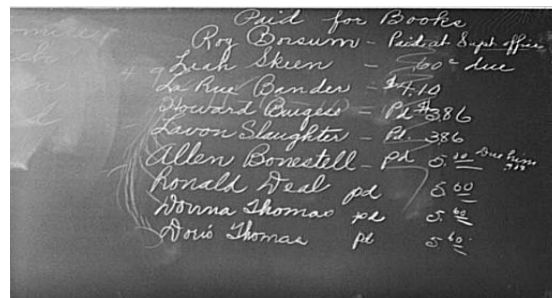 Paid for Books
Roy Borsum - Paid at Supt office
Leah Skeen - 60¢ due
La Rue Bander = $4.10
Howard Burgess = Pd $3.86
Lavon Slaughter - Pd. 3.86
Allen Bonestell - Pd 5.00 Due him
Ronald Deal pd 5.60
Donna Thomas pd 5.60
Doris Thomas pd 5.60